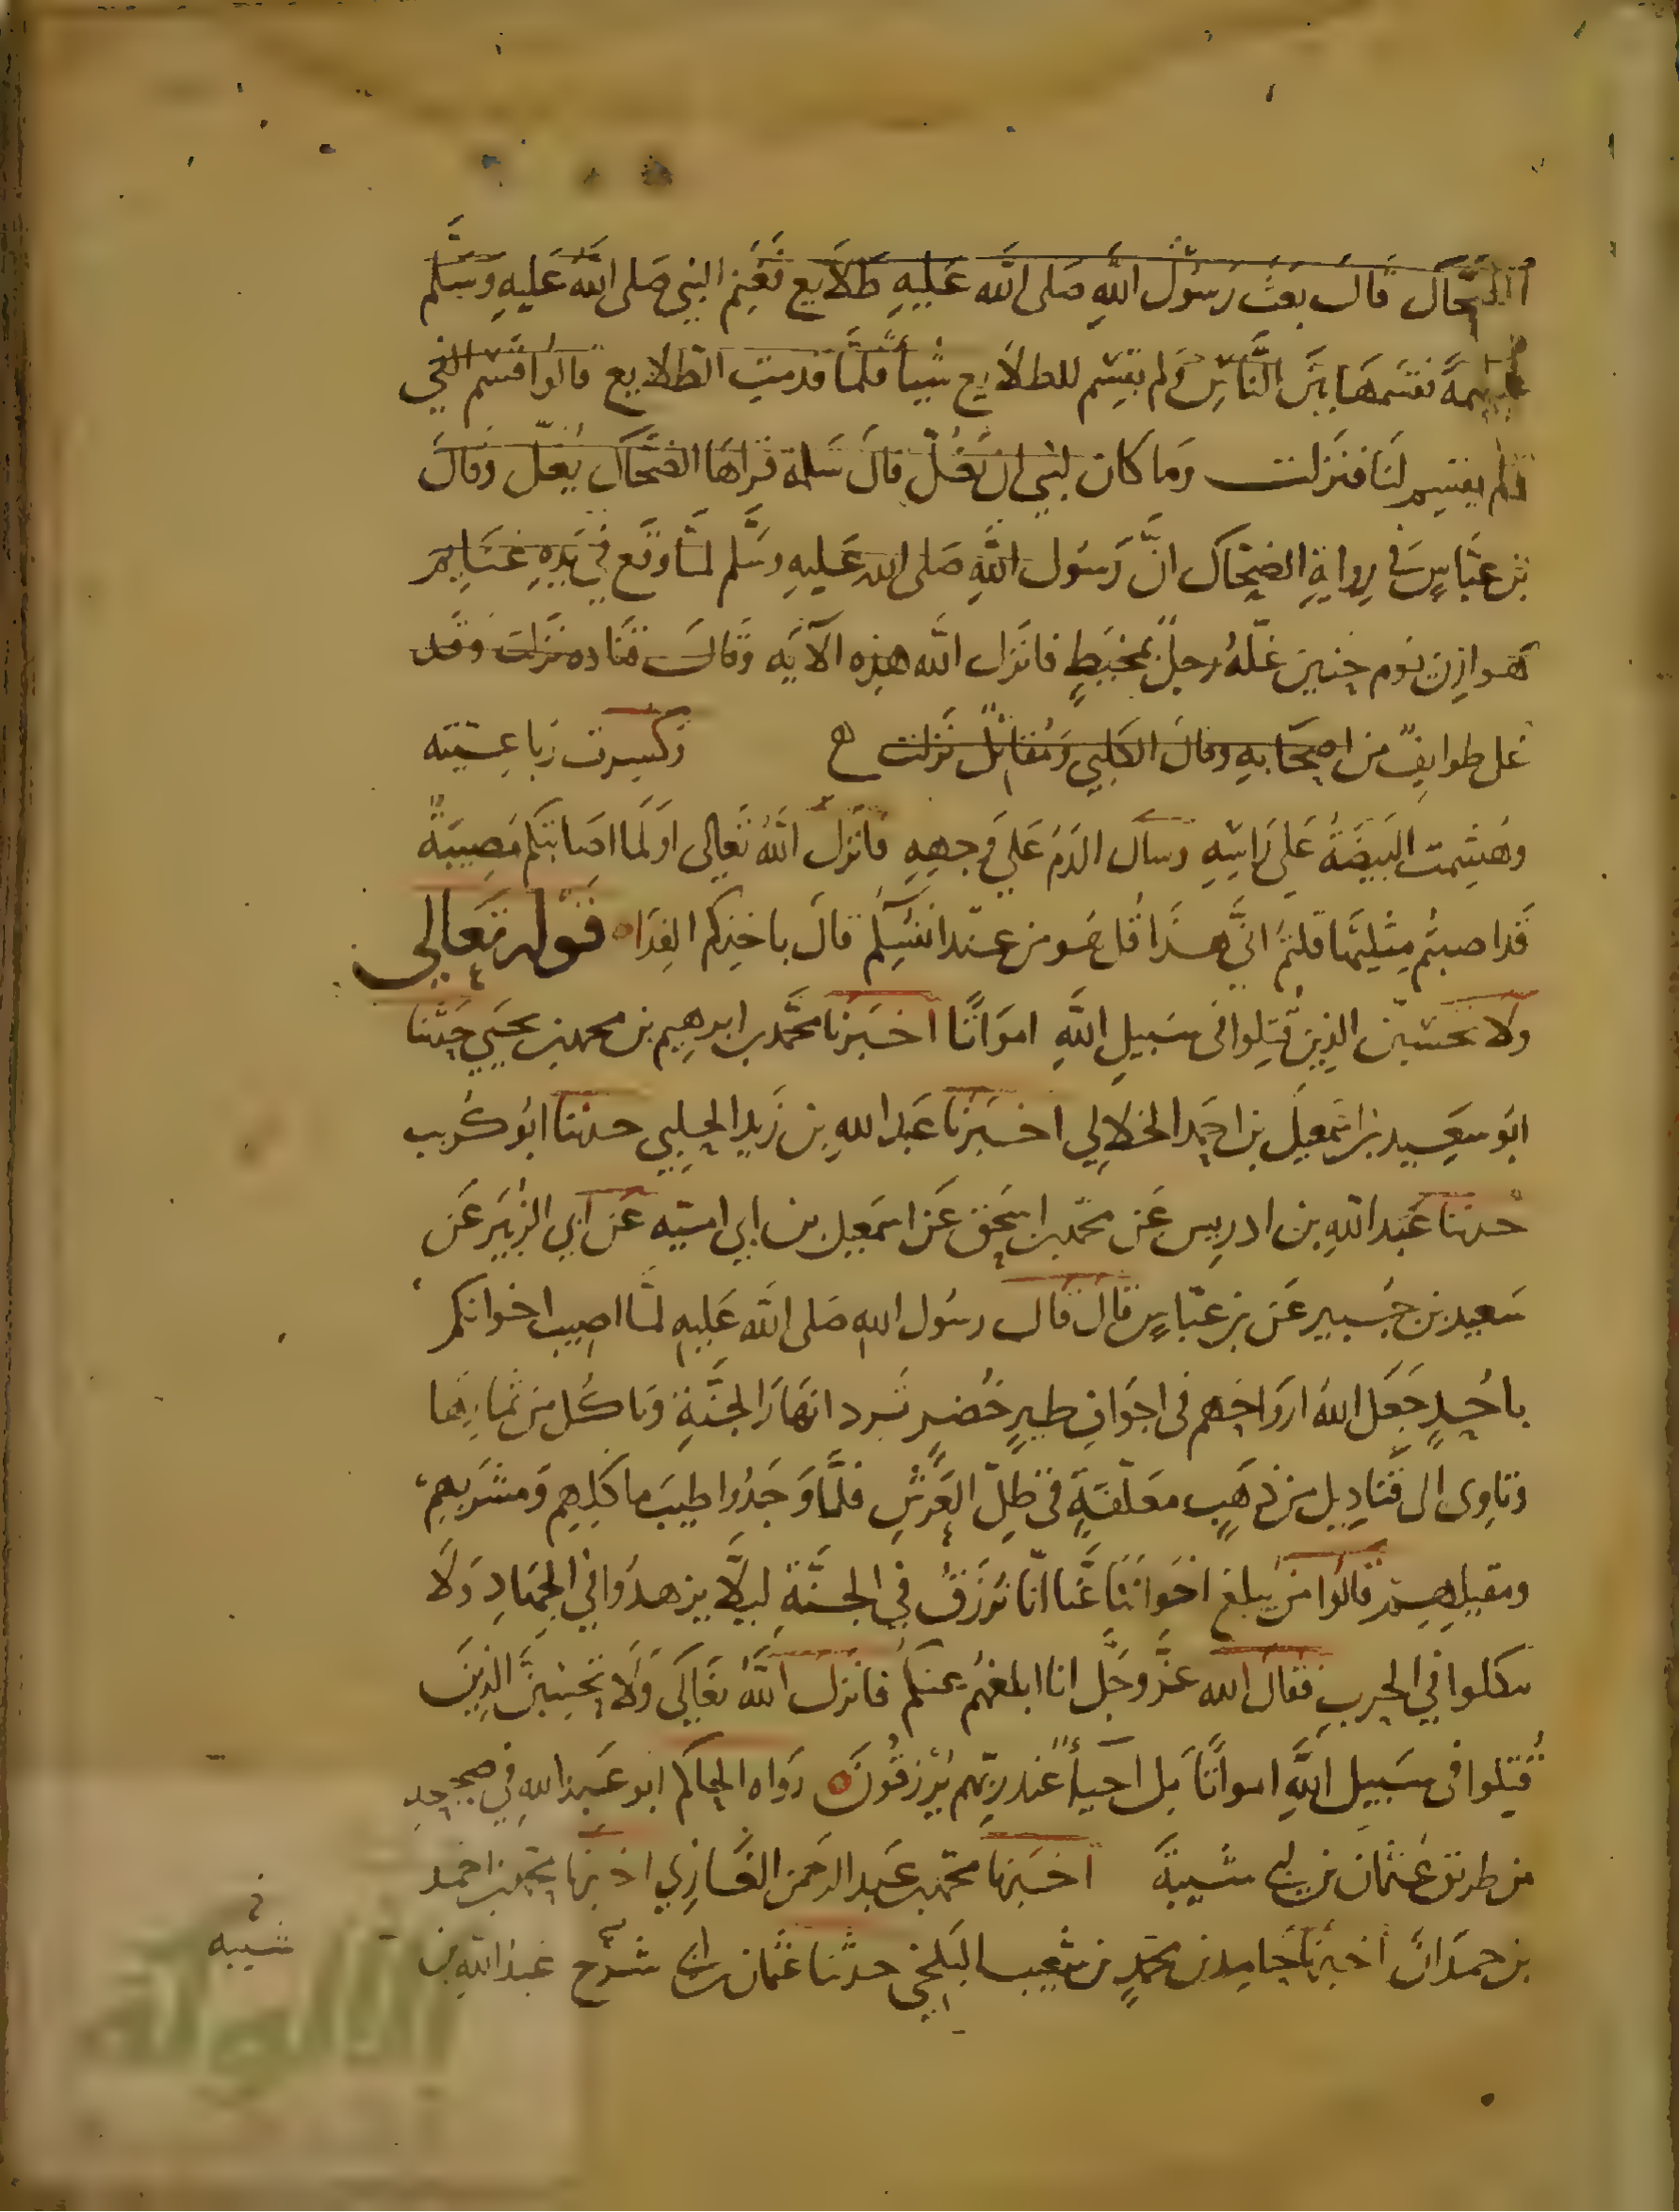 الضحاك قال بعث رسول الله صلى الله عليه طلايع فغنم النبي صلى الله عليه وسلم
غنيمة فقسمها بين الناس ولم يقسم للطلايع شيأ فلما قدمت الطلايع قالوا قسم الفي
فلم يقسم لنا فنزلت وما كان لنبي ان يغل قال سلمة قراها الضحاك يغل وقال
بن عباس في رواية الضحاك ان رسول الله صلى الله عليه وسلم لما وقع في يده غنايم
هوازن يوم حنين غله رجل بمخيط فانزل الله هذه الآيه وقال قتاده نزلت وقد
غل طوايف من اصحابه وقال الكلبي ومقاتل نزلت ح وكسرت رباعيته
وهشمت البيضة على راسه وسال الدم على وجهه فانزل الله تعالى اولما اصابتكم مصيبة
قد اصبتم مثليها قلتم انى هذا قل هو من عند انفسكم قال باخذكم الفداء قوله تعالى
ولا تحسبن الذين قتلوا في سبيل الله امواتا اخبرنا محمد بن ابرهيم بن محمد بن يحيي حدثنا
ابو سعيد بن اسمعيل بن احمد الخلالي اخبرنا عبد الله بن زيد البجلي حدثنا ابو كريب
حدثنا عبد الله بن ادريس عن محمد بن اسحق عن اسمعيل بن ابي اميه عن ابي الزبير عن
سعيد بن جبير عن بن عباس قال قال رسول الله صلى الله عليه لما اصيب اخوانكم
باحد جعل الله ارواحهم في اجواف طير خضر ترد انهار الجنة وتاكل من ثمارها
وتاوى الى قناديل من ذهب معلقة في ظل العرش فلما وجدوا طيب ماكلهم ومشربهم
ومقيلهم قالوا من يبلغ اخواننا عنا انا نرزق في الجنة ليلا يزهدوا في الجهاد ولا
ينكلوا في الحرب فقال الله عز وجل انا ابلغهم عنكم فانزل الله تعالى ولا تحسبن الذين
قتلوا في سبيل الله امواتا بل احيأ عند ربهم يرزقون رواه الحاكم ابو عبد الله في صحيحه
من طريق عثمان بن ابي شيبة اخبرنا محمد بن عبد الرحمن الغازي اخبرنا محمد بن احمد
بن حمدان اخبرنا حامد بن محمد بن شعيب البلخي حدثنا عثمان بن ابي عبد الله بن
شيبه
الألوكة